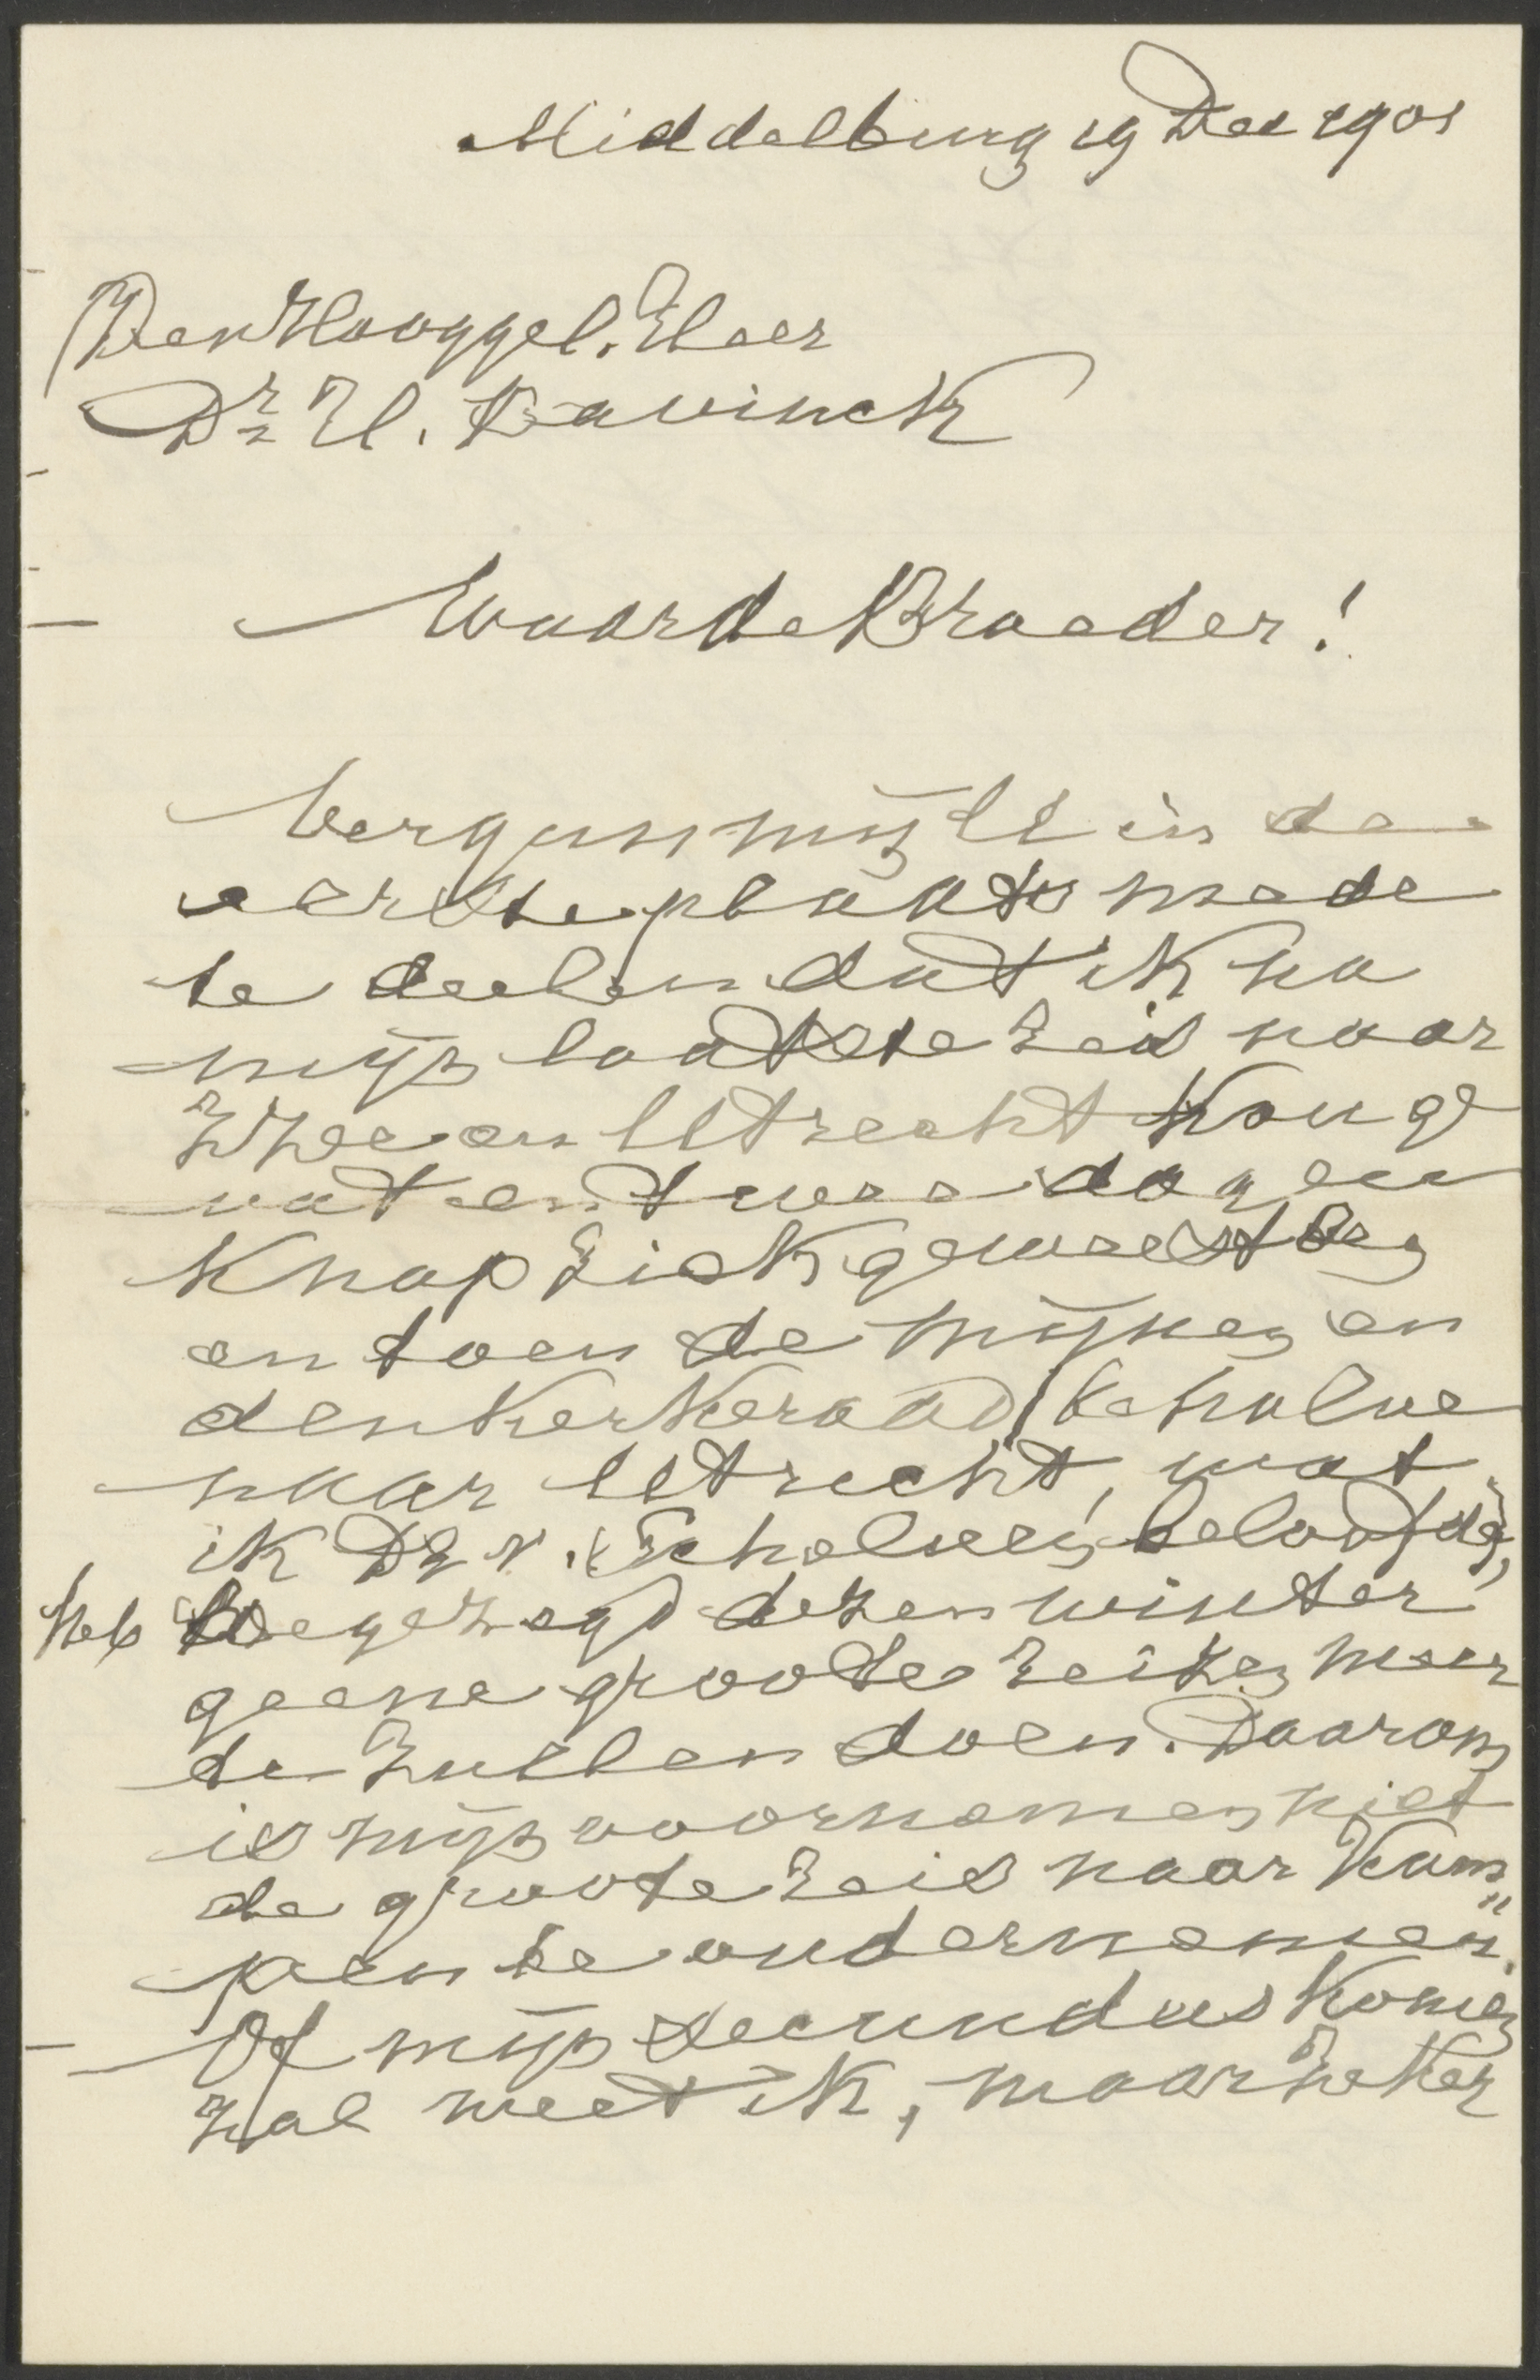 Middelburg 19 Dec 1901
Den Hooggel. Heer
Dr H. Bavinck
Waarde Broeder!
Vergun mij U in de
eerste plaats mede
te deelen dat ik na
mijn laatste reis naar
en Utrecht kou ge
vat en twee dagen
knap ziek geweest ben
en toen de mijnen en
den Kerkeraad behalve
naar Utrecht, wat
ik Ds v. Schelven beloofde,
heb toegezegd dezen winter
geene groote reizen meer
te zullen doen. Daarom
is mijn voornemen niet
de groote reis naar Kam„
pen te ondernemen.
Of mijn secundus komen
zal weet ik, maar zeker